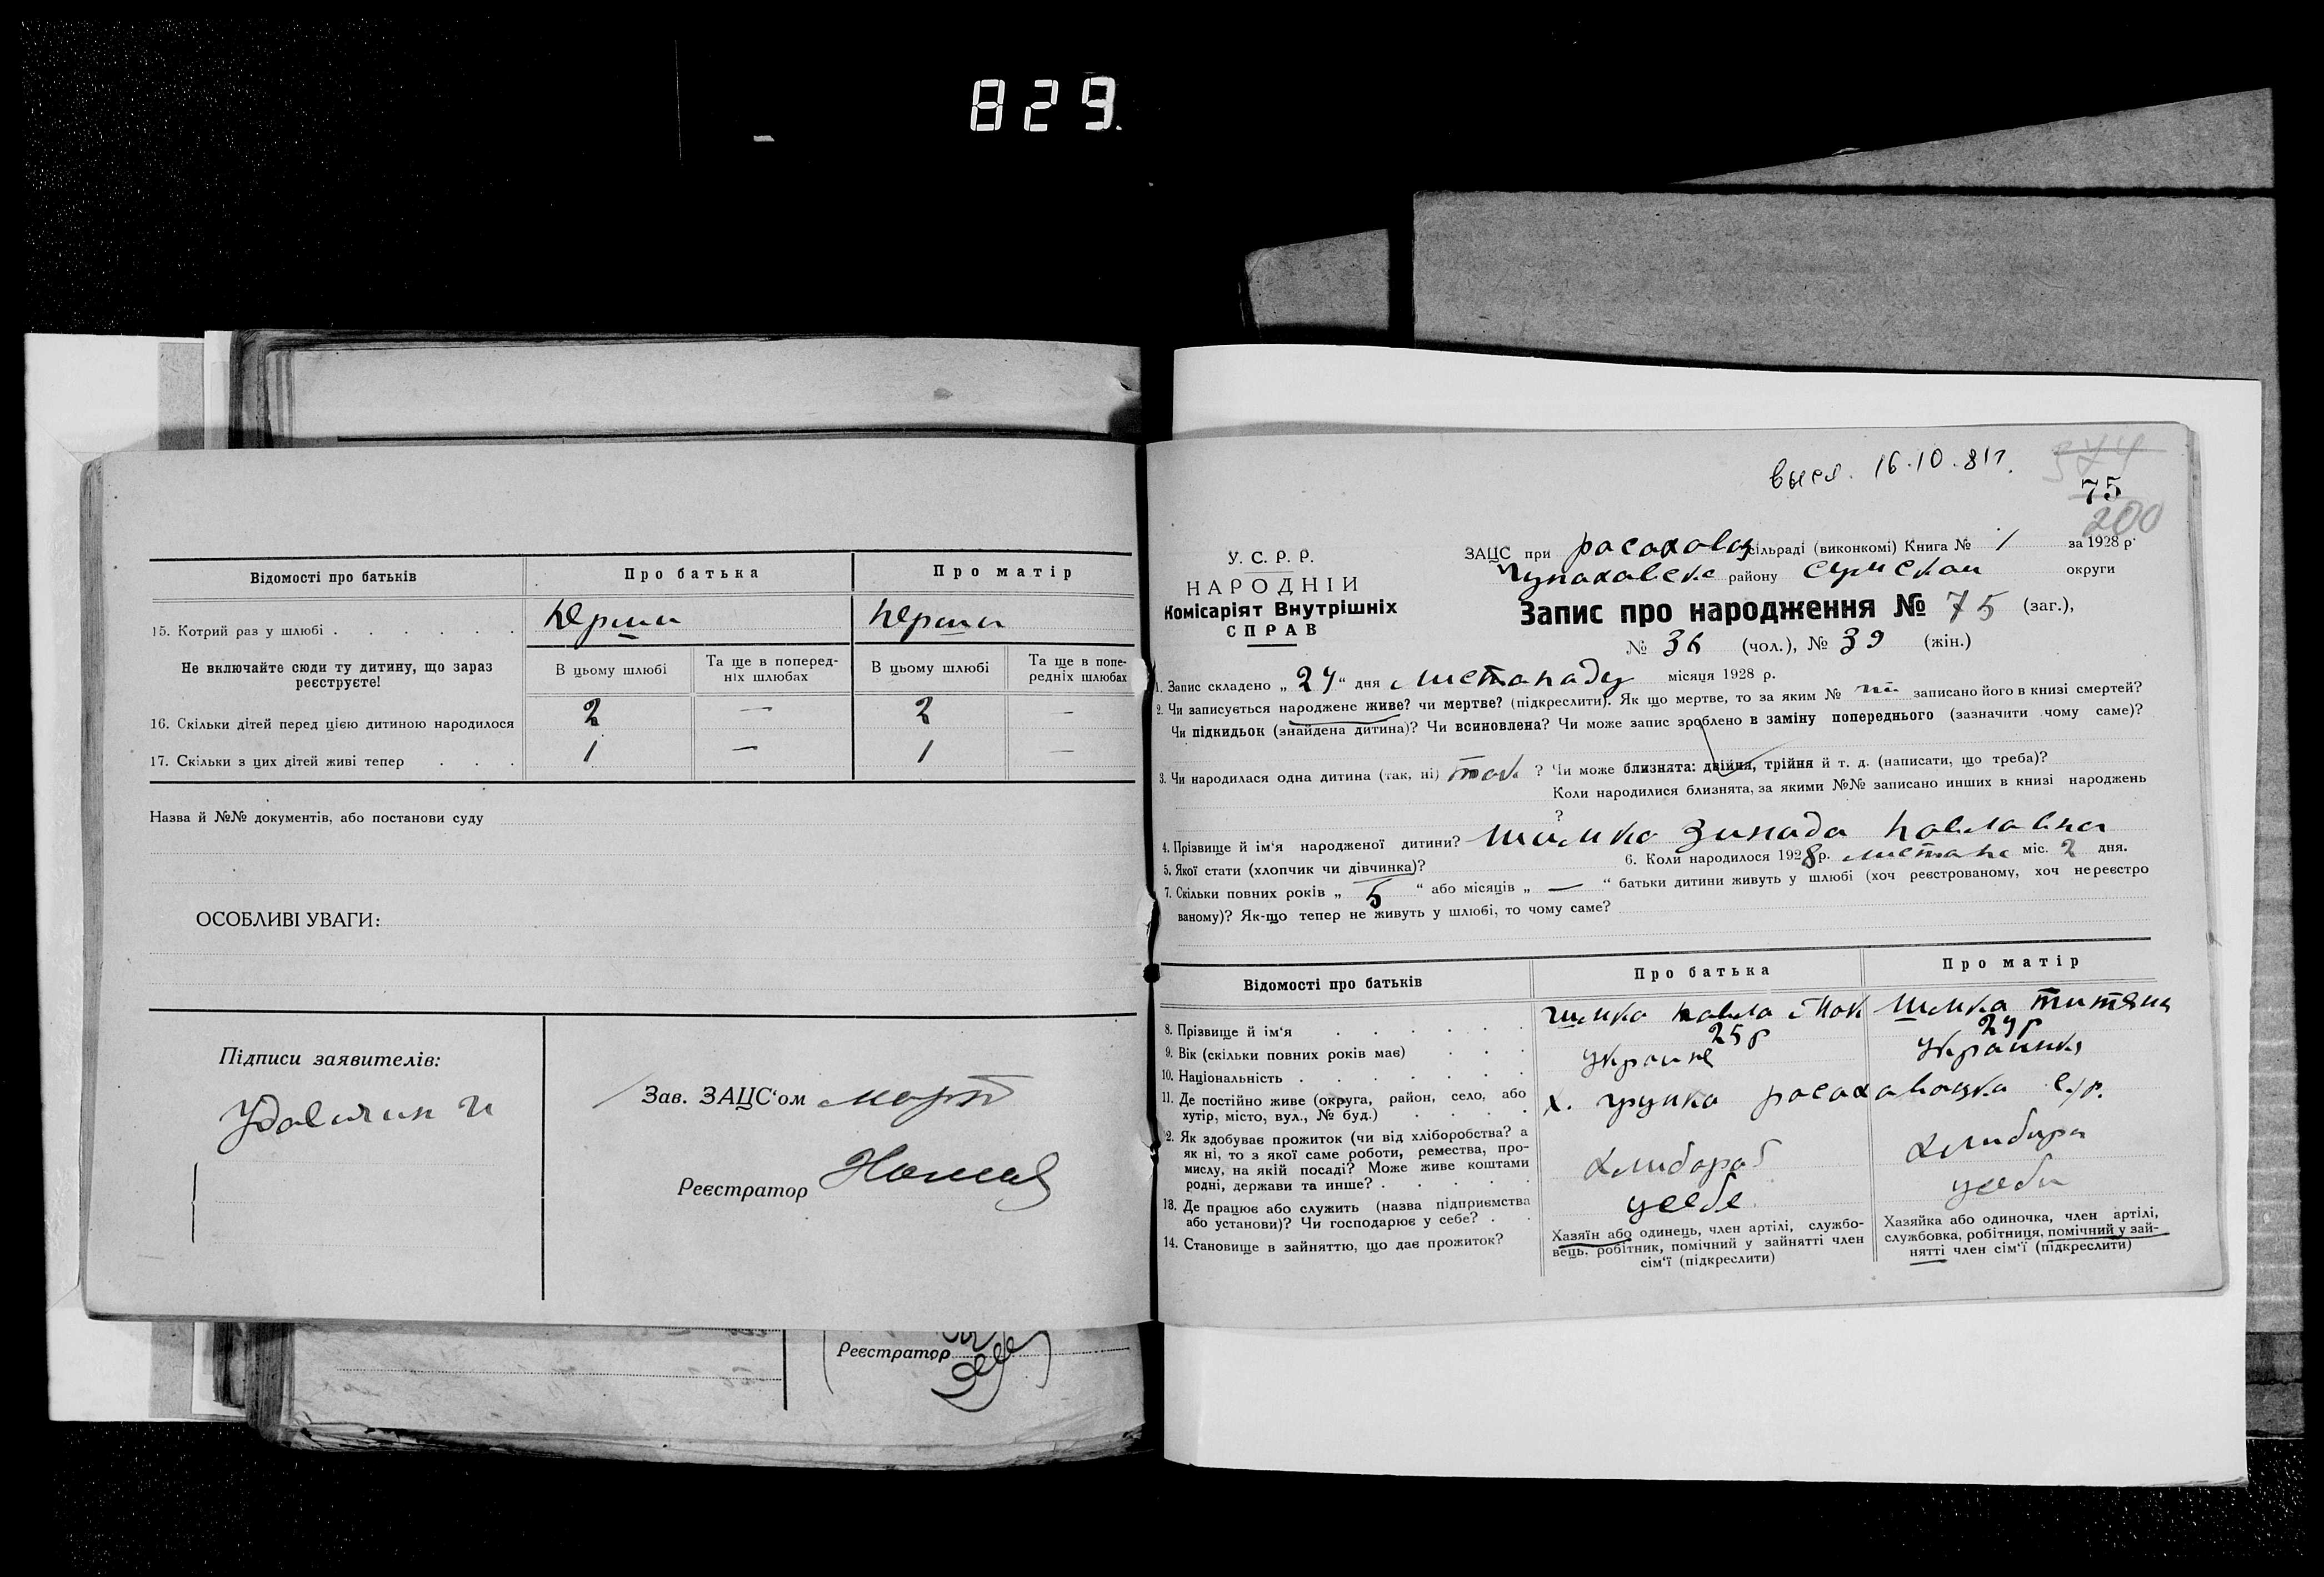 829.
Відомості про батьків
Про батька
Про матір
15. Котрий раз у шлюбі
перши
перши
Не включайте сюди ту дитину, що зараз реєструєте!
В цьому шлюбі
Та ще в попередніх шлюбах
В цьому шлюбі
Та ще в попередніх шлюбах
16. Скільки дітей перед цією дитиною народилося
2 — 2 —
17. Скільки з цих дітей живі тепер
1 — 1 —
Назва й №№ документів, або постанови суду
ОСОБЛИВІ УВАГИ:
Підписи заявителів:
Зав. ЗАЦС'ом
Реєстратор
Реєстратор
16.10.81г.
574
75
200
У. С. Р. Р.
НАРОДНІЙ
Комісаріят Внутрішніх
СПРАВ
ЗАЦС при сільраді (виконкомі) Книга № 1 за 1928 р.
району округи
Запис про народження № 75 (заг.),
№ 36 (чол.), № 39 (жін.)
1. Запис складено „24“ дня листопаду місяця 1928 р.
2. Чи записується народжене живе? чи мертве? (підкреслити). Як що мертве, то за яким № записано його в книзі смертей?
Чи підкидьок (знайдена дитина)? Чи всиновлена? Чи може запис зроблено в заміну попереднього (зазначити чому саме)?
3. Чи народилася одна дитина (так, ні) так ? Чи може близнята: двійня, трійня й т. д. (написати, що треба)?
Коли народилися близнята, за якими №№ записано инших в книзі народжень
?
4. Прізвище й ім'я народженої дитини? Шимко Зинада Павлавна
5. Якої стати (хлопчик чи дівчинка)?
6. Коли народилося 1928 р. листопа міс. 2 дня.
7. Скільки повних років „ 5 “ або місяців „ — “ батьки дитини живуть у шлюбі (хоч реєстрованому, хоч нереєстро
ваному)? Як-що тепер не живуть у шлюбі, то чому саме?
Відомості про батьків
Про батька
Про матір
8. Прізвище й ім'я
Шимко Павло
Шимка
9. Вік (скільки повних років має)
25р
24р
10. Національність
Украине
Украинка
11. Де постійно живе (округа, район, село, або
хутір, місто, вул., № буд.)
х.
12. Як здобуває прожиток (чи від хліборобства? а
як ні, то з якої саме роботи, ремества, про-
мислу, на якій посаді? Може живе коштами
родні, держави та инше?
хлибороб
13. Де працює або служить (назва підприємства
або установи)? Чи господарює у себе?
усебе
усеби
14. Становище в зайняттю, що дає прожиток?
Хазяїн або одинець, член артілі, службо-
вець, робітник, помічний у зайнятті член
сім'ї (підкреслити)
Хазяйка або одиночка, член артілі,
службовка, робітниця, помічний у зай-
нятті член сім'ї (підкреслити)